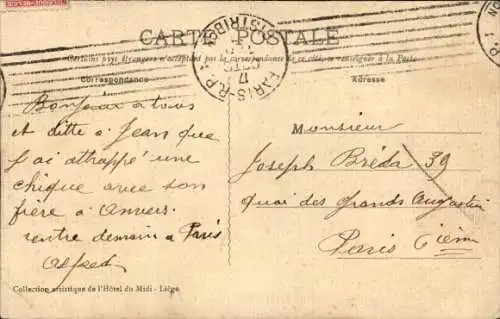 CARTE POSTALE
Certains pays étrangers n'acceptent pas la correspondance de ce côté, se renseigner à la Poste
Correspondance
Adresse
PARIS R.P.
DISTRIBON
17
Bonjour a tous
et ditte a Jean que
j'ai attrappé une
chique avec son
fière a Anvers.
rentre demain a Paris
Alfred
Monsieur
Joseph Bréda 39
quai des grands Augustin
Paris 6ième
Collection artistique de l'Hôtel du Midi - Liège